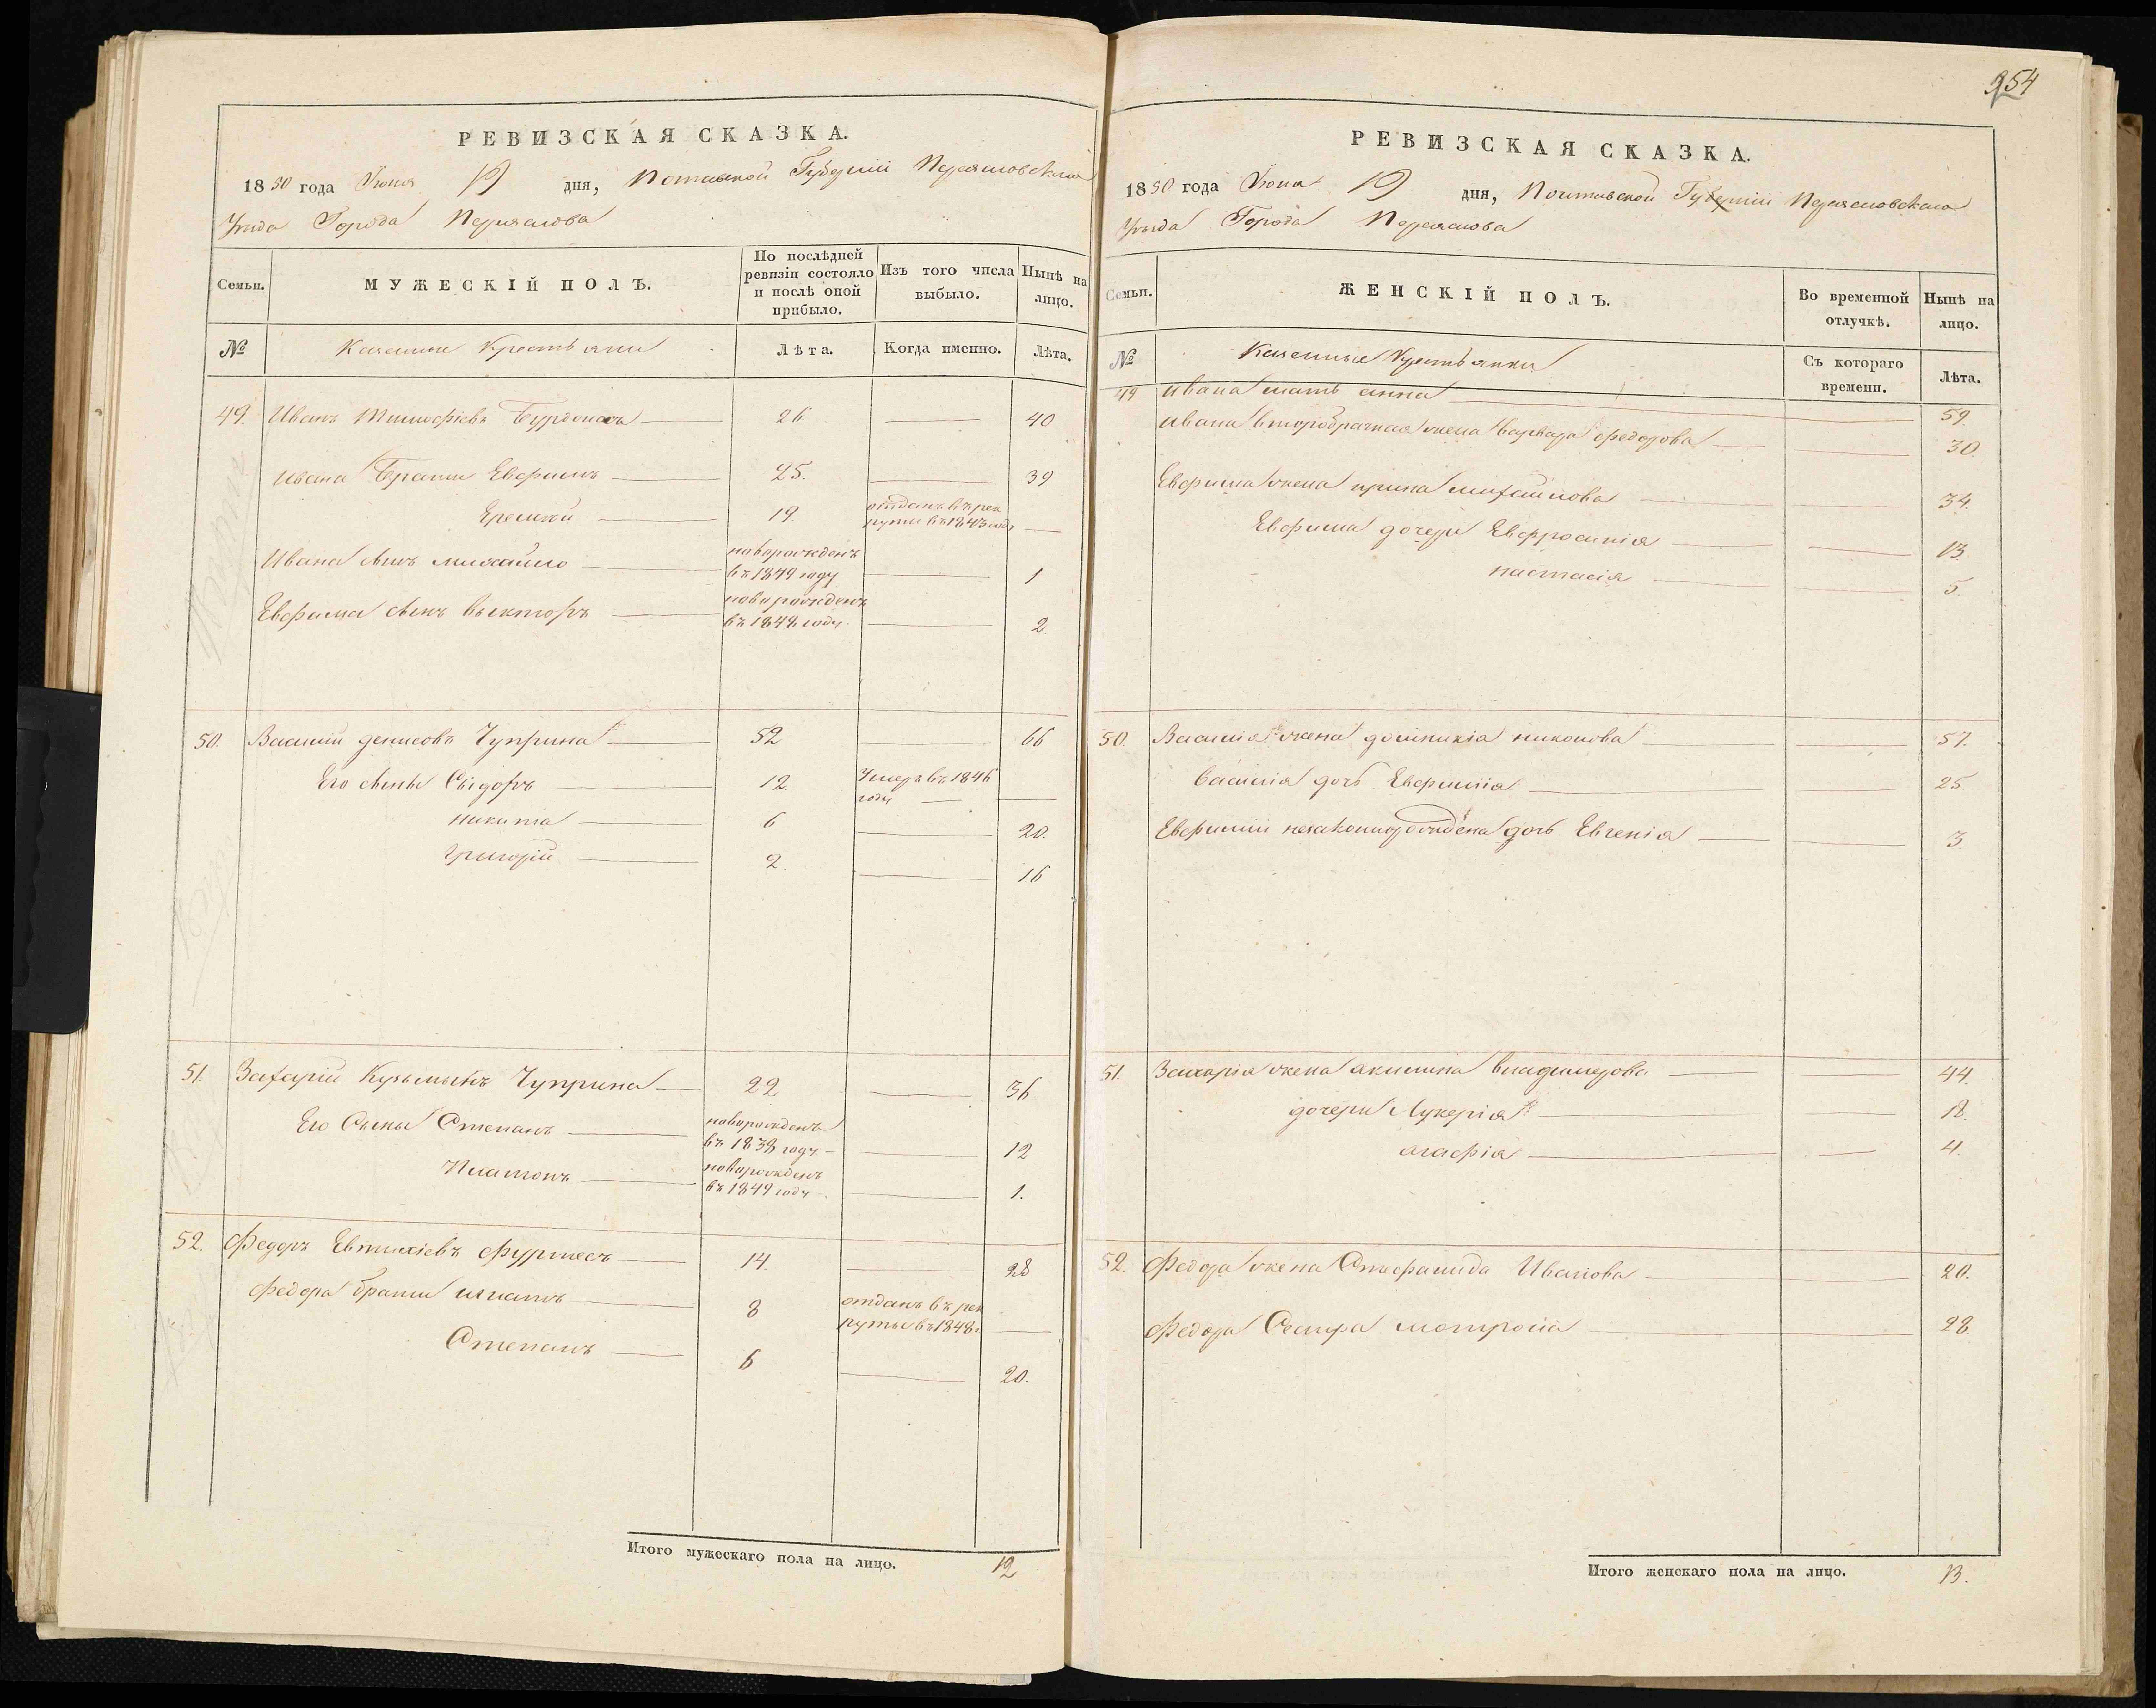 954
РЕВИЗСКАЯ СКАЗКА.
1850 года Июня 19 дня, Полтавской Губерніи Переяславскаго
Уезда Города Переяслова
Семьи.
МУЖЕСКІЙ ПОЛЪ.
По послѣдней ревизіи состояло и послѣ оной прибыло.
Изъ того числа выбыло.
Нынѣ на лицо.
№
Казенные Крестьяни
Лѣта.
Когда именно.
Лѣта.
49. Иванъ Тимофіевъ 26 40
Ивана Брати Евфимъ 25. 39
Еремѣй 19. отданъ въ рек
руты въ 1843 годъ
Ивана сынъ михайло новорожденъ
въ 1849 году 1
Евфима сынъ викторъ новорожденъ
въ 1848 году. 2
50. Василій денисовъ Чуприна 52 66
Его сыны Сидоръ 12. Умеръ въ 1846
году
никита 6 20.
Григорій 2. 16
51. Захарій Кузьминъ Чуприна 22 36
Его Сыны Степанъ новорожденъ
въ 1838 году 12
Платонъ новорожденъ
въ 1849 году 1.
52. Федоръ Евтихіевъ Фурмесъ 14. 28
Федора брати игнатъ 8 отданъ въ рек
руты въ 1848 г
Степанъ 6 20.
Итого мужескаго пола на лицо. 12
РЕВИЗСКАЯ СКАЗКА.
1850 года Июня 19 дня, Полтавской Губерніи Переяславскаго
Уезда Города Переяслова
Семьи.
ЖЕНСКІЙ ПОЛЪ.
Во временной отлучкѣ.
Нынѣ на лицо.
№
Казенные Крестьянки
Съ котораго времени.
Лѣта.
49 Ивана мать анна 59.
Ивана второбрачная жена варвара федорова 30.
Евфима жена ирина михайлова 34.
Евфима дочери Евфросинія 13
настасія 5.
50. Василія жена домникія никонова 57.
Василія дочь Евфимія 25
Евфиміи незаконнорожdена дочь Евгенія 3.
51. Захарія жена акилина владимерова 44.
дочери Лукерія 18.
агафія 4.
52. Федора жена Стефанида Иванова 20.
Федора Сестра мотрона 28.
Итого женскаго пола на лицо. 13.